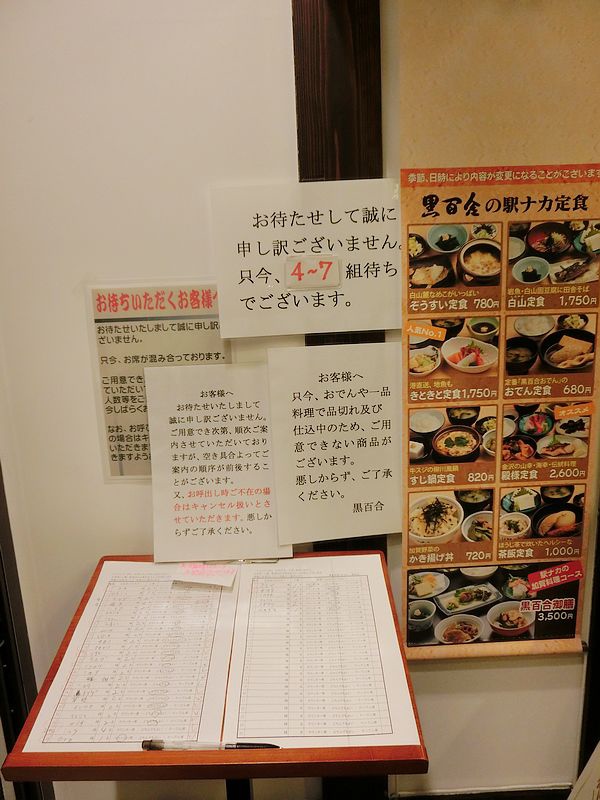 お待たせして誠に
申し訳ございません。
只今、4~7 組待ち
でございます。
お待ちいただくお客様へ
お待たせいたしまして誠に申し訳
ざいません。
只今、お席が混み合っております。
ご用意でき
ていただい
人数等をご
今しばらくお
なお、お呼び
の場合はキ
いただきます
きますよう
お客様へ
お待たせいたしまして
誠に申し訳ございません。
ご用意でき次第、順次ご案
内させていただいており
ますが、空き具合よってご
案内の順序が前後するこ
とがございます。
又、お呼出し時ご不在の場
合はキャンセル扱いとさ
せていただきます。悪しか
らずご了承ください。
お客様へ
只今、おでんや一品
料理で品切れ及び
仕込中のため、ご用
意できない商品が
ございます。
悪しからず、ご了承
ください。
黒百合
季節、日時により内容が変更になることがございます
黒百合の駅ナカ定食
白山麓なめこがいっぱい
ぞうすい定食 780円
岩魚・白山固豆腐に田舎そば
白山定食 1,750円
人気No.1
港直送、地魚も
きときと定食1,750円
定番「黒百合おでん」の
おでん定食 680円
牛スジの柳川風鍋
すじ鍋定食 820円
オススメ
金沢の山幸・海幸・伝統料理
殿様定食 2,600円
加賀野菜の
かき揚げ丼 720円
ほうじ茶で炊いたヘルシーな
茶飯定食 1,000円
駅ナカの
加賀料理コース
黒百合御膳
3,500円